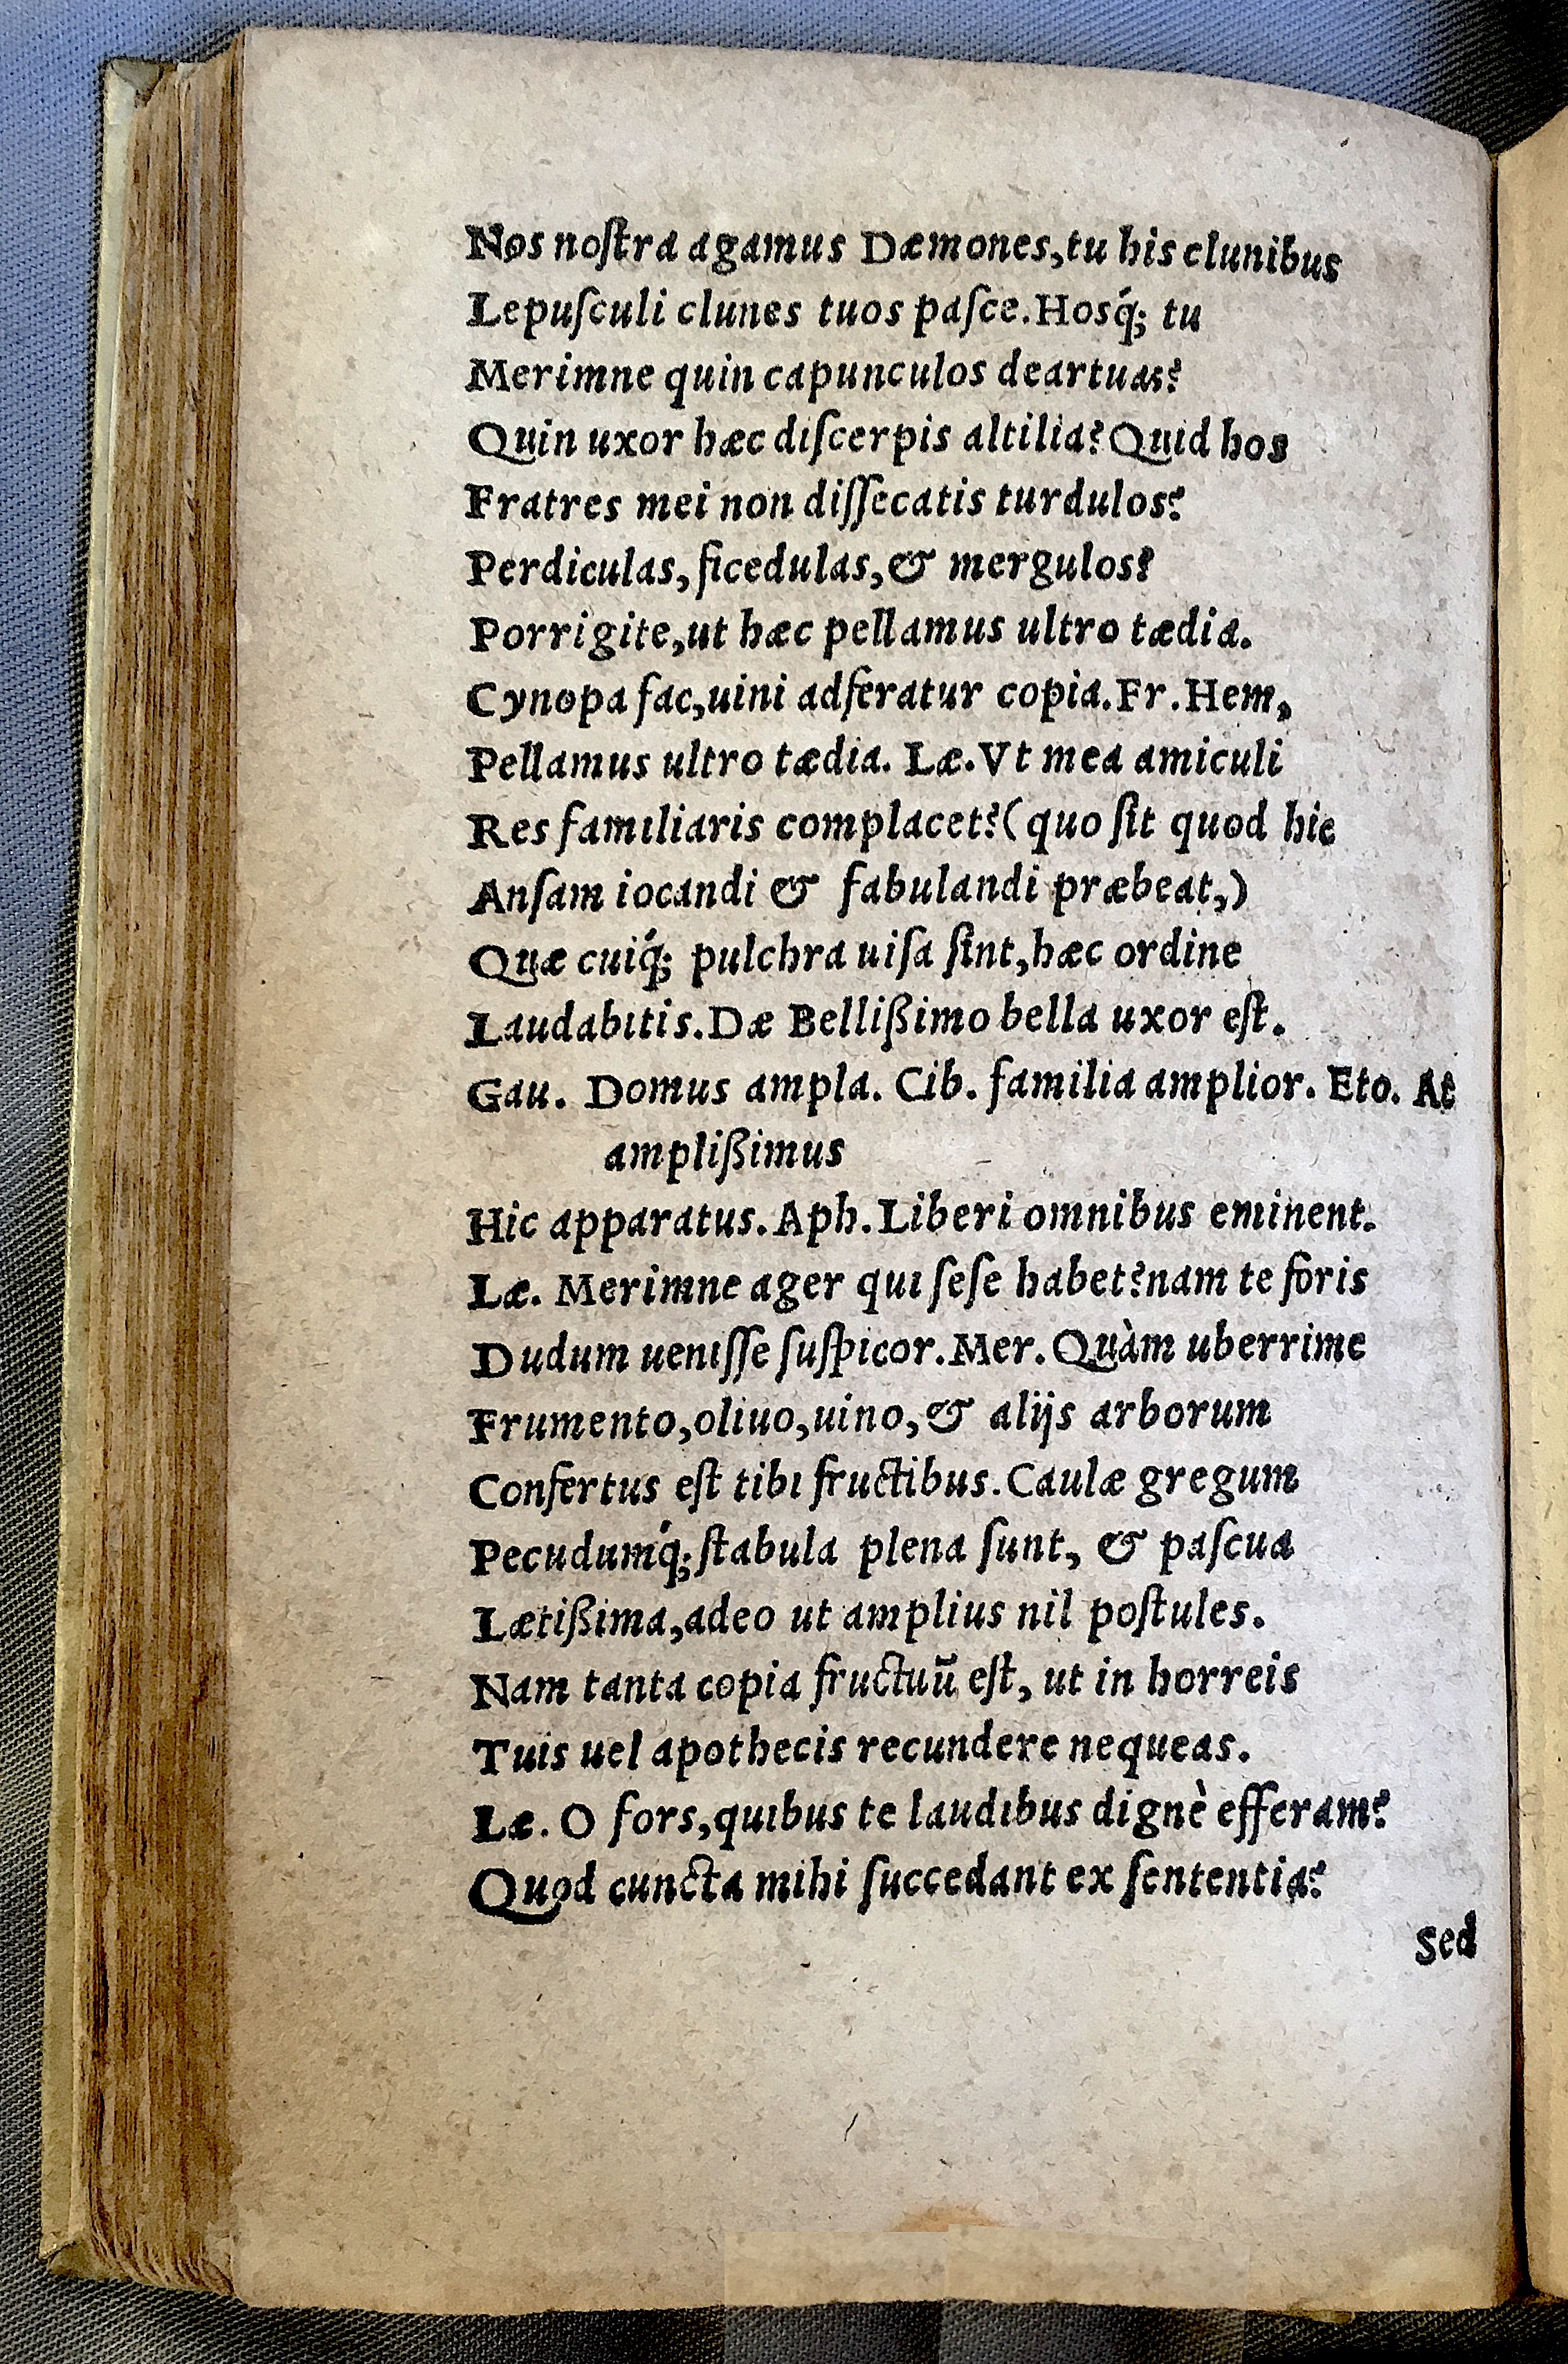 Nos noſtra agamus Dæmones,tu his clunibus
Lepuſculi clunes tuos paſce.Hosq́; tu
Merimne quin capunculos deartuas?
Quin uxor hæc diſcerpis altilia? Quid hos
Fratres mei non diſſecatis turdulos?
Perdiculas, ficedulas,& mergulos?
Porrigite,ut hæc pellamus ultro tædia.
Cynopa fac,uini adferatur copia.Fr.Hem,
Pellamus ultro tædia. Læ.Vt mea amiculi
Res familiaris complacet?( quo ſit quod hic
Anſam iocandi & fabulandi præbeat,)
Quæ cuiq́; pulchra uiſa ſint,hæc ordine
Laudabitis.Dæ Bellißimo bella uxor eſt.
Gau. Domus ampla. Cib. familia amplior. Eto. At
amplißimus
Hic apparatus.Aph.Liberi omnibus eminent.
Læ. Merimne ager qui ſeſe habet?nam te foris
Dudum ueniſſe ſuſpicor.Mer.Quàm uberrime
Frumento,oliuo,uino,& alijs arborum
Confertus eſt tibi fructibus.Caulæ gregum
Pecudumq́;ſtabula plena ſunt, & paſcua
Lætißima,adeo ut amplius nil poſtules.
Nam tanta copia fructuū eſt, ut in horreis
Tuis uel apothecis recundere nequeas.
Læ. O fors,quibus te laudibus dignè efferam?
Quod cuncta mihi ſuccedant ex ſententia?
Sed